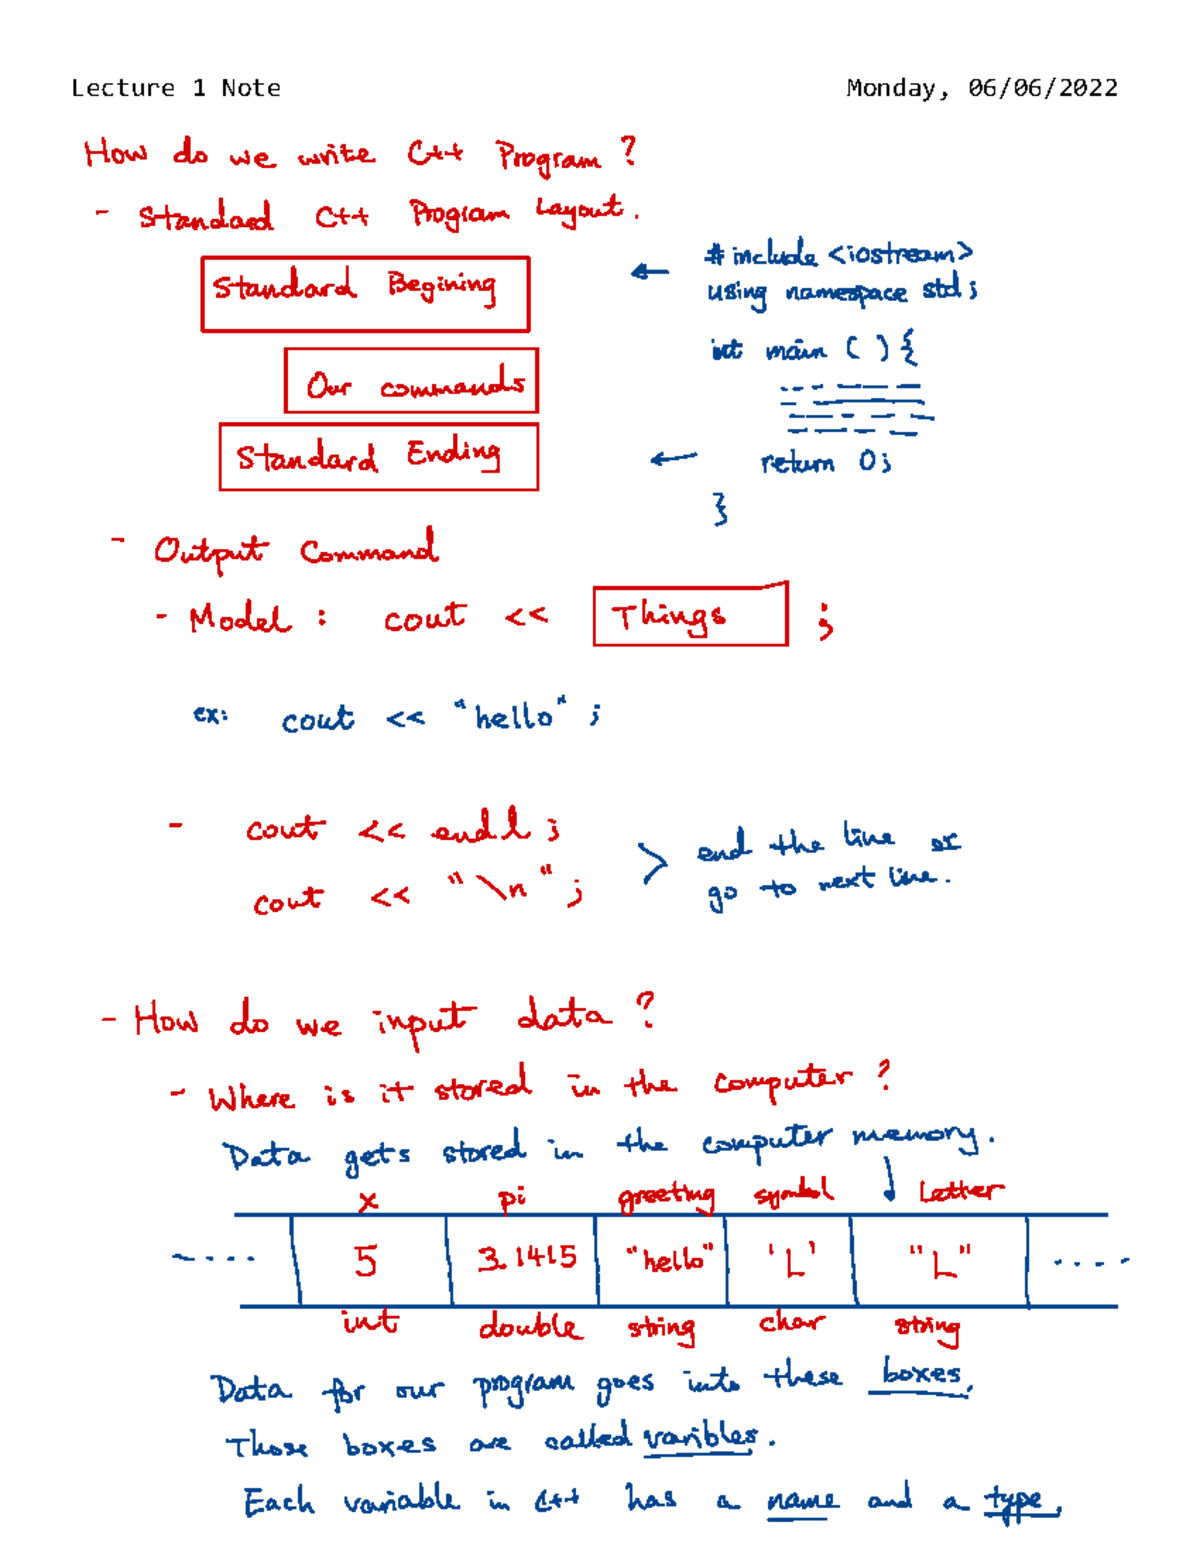 Lecture 1 Note Monday, 06/06/2022
How do we write C++ Program ?
- Standard C++ Program Layout.
Standard Begining
← #include <iostream>
using namespace std;
int main ( ) {
Our commands
Standard Ending
← return 0;
}
- Output Command
- Model : cout << Things ;
ex: cout << "hello" ;
- cout << endl ;
cout << "\n" ;
> end the line or
go to next line.
- How do we input data ?
- Where is it stored in the computer ?
Data gets stored in the computer memory.
x pi greeting symbol ↓ Letter
---- 5 3.1415 "hello" 'L' "L" ----
int double string char string
Data for our program goes into these boxes.
Those boxes are called varibles.
Each variable in C++ has a name and a type.